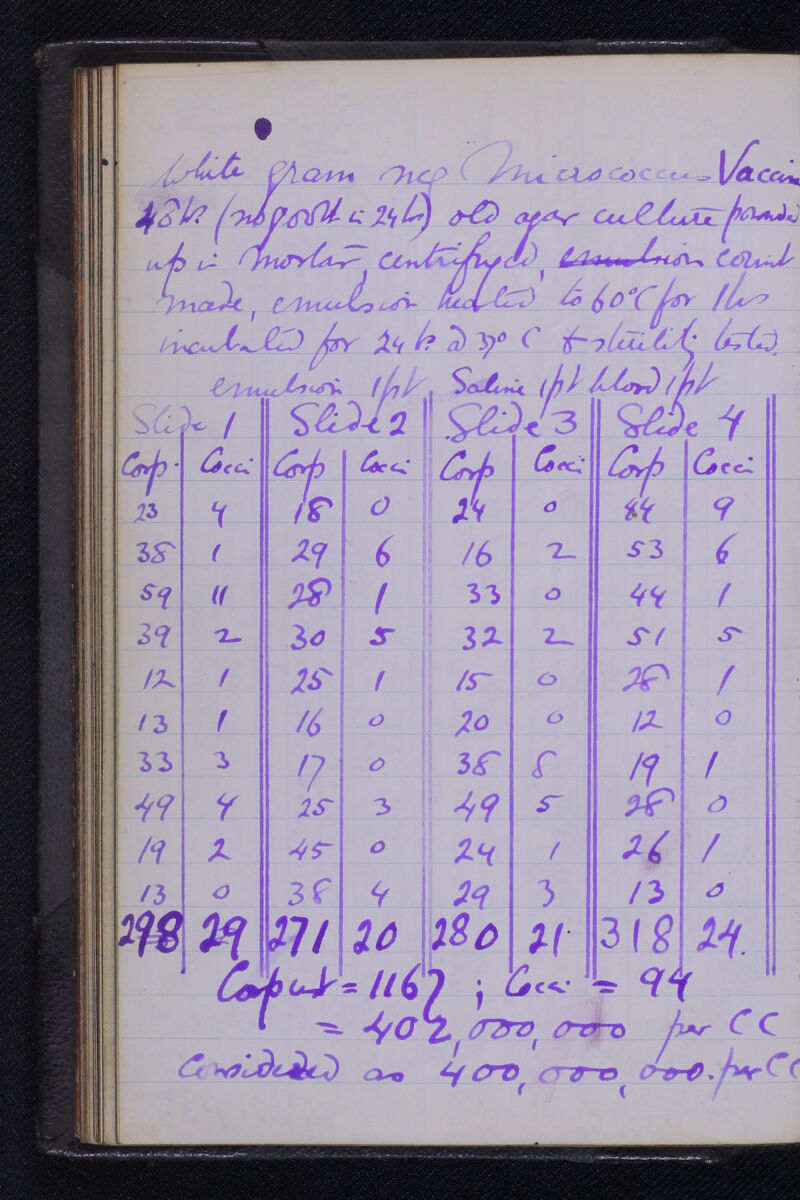 White gram neg Micrococcus Vaccin
48 hr (no goodth in 24 hr) old agar culture pounded
up in mortar, centrifuged, emulsion count
made, emulsion heated to 60°C for 1 hr
incubated for 24 hr @ 37° C + sterility tested.
emulsion 1pt Saline 1pt blood 1pt
Slide 1 Slide 2 Slide 3 Slide 4
Corp. Cocci Corp Cocci Corp Cocci Corp Cocci
23 4 18 0 24 0 44 9
38 1 29 6 16 2 53 6
59 11 28 1 33 0 44 1
39 2 30 5 32 2 51 5
12 1 25 1 15 0 28 1
13 1 16 0 20 0 12 0
33 3 17 0 38 8 19 1
49 4 25 3 49 5 28 0
19 2 45 0 24 1 26 1
13 0 38 4 29 3 13 0
298 29 271 20 280 21 318 24.
= 1167 ; Cocci = 94
= 402,000,000 per CC
Considered as 400,000,000. per CC